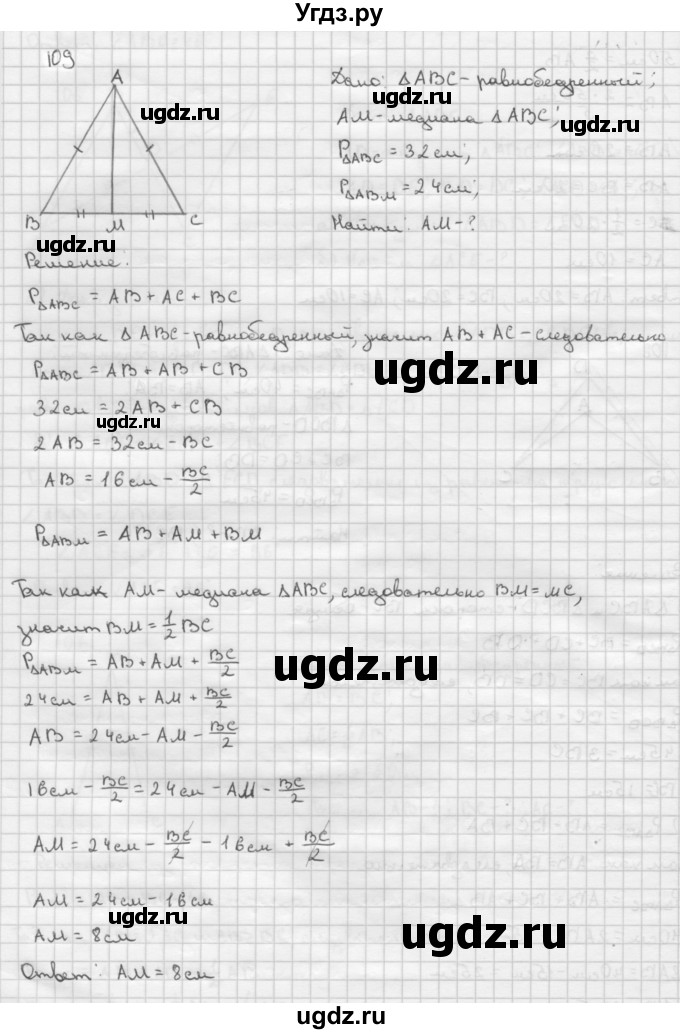 Угдз.ру
109
A
B
M
C
ugdz.ru
ugdz.ru
Дано: ΔABC - равнобедренный;
AM - медиана ΔABC;
ugdz.ru
P_ΔABC = 32 см;
P_ΔABM = 24 см;
Найти: AM - ?
Решение:
P_ΔABC = AB + AC + BC
Так как ΔABC - равнобедренный, значит AB + AC - следовательно
P_ΔABC = AB + AB + CB
ugdz.ru
32 см = 2AB + CB
ugdz.ru
2AB = 32 см - BC
AB = 16 см - BC/2
P_ΔABM = AB + AM + BM
Так как AM - медиана ΔABC, следовательно BM = MC,
значит BM = 1/2 BC
P_ΔABM = AB + AM + BC/2
ugdz.ru
24 см = AB + AM + BC/2
AB = 24 см - AM - BC/2
16 см - BC/2 = 24 см - AM - BC/2
AM = 24 см - BC/2 - 16 см + BC/2
ugdz.ru
AM = 24 см - 16 см
ugdz.ru
AM = 8 см
ugdz.ru
Ответ: AM = 8 см
ugdz.ru